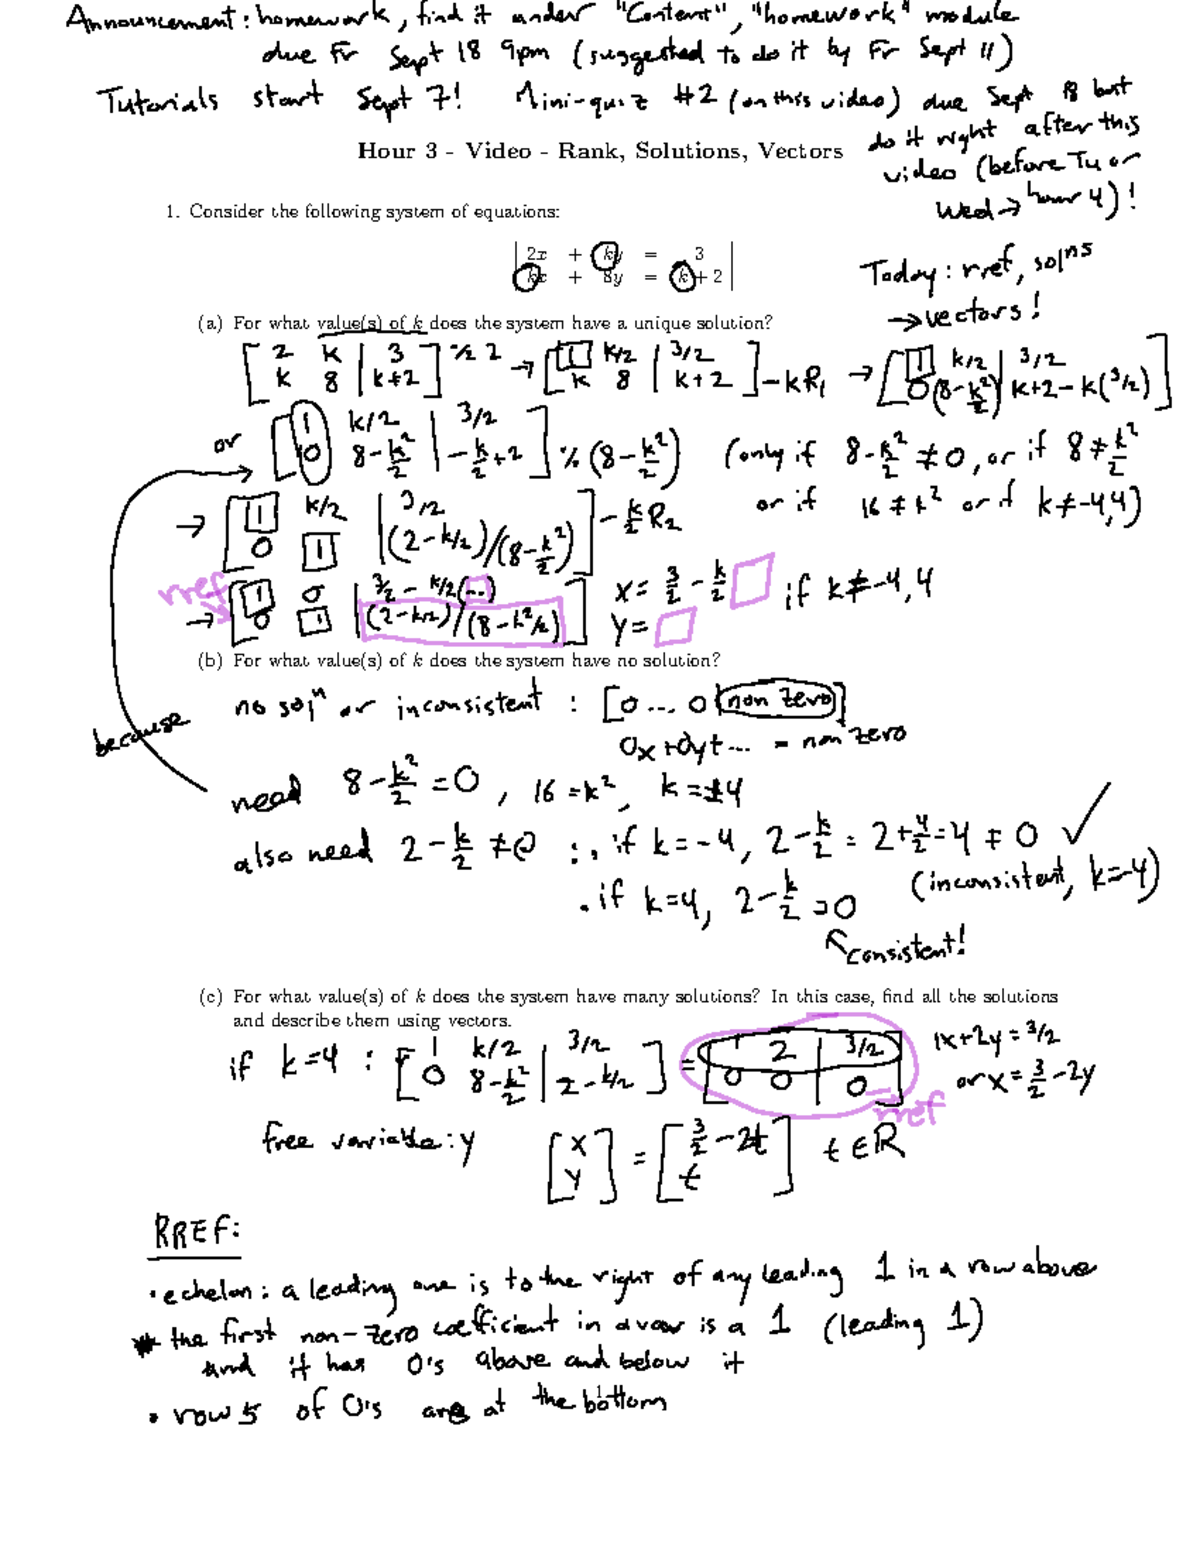 Announcement: homework, find it under "Content", "homework" module
due Fr Sept 18 9pm (suggested to do it by Fr Sept 11)
Tutorials start Sept 7! Mini-quiz #2 (on this video) due Sept 18 but
do it right after this
video (before Tu or
Wed → hour 4)!
Hour 3 - Video - Rank, Solutions, Vectors
1. Consider the following system of equations:
| 2x + ky = 3 |
| kx + 8y = k + 2 |
Today: rref, sol^ns
→ vectors!
(a) For what value(s) of k does the system have a unique solution?
[2 k | 3; k 8 | k+2] ½ 2 → [1 k/2 | 3/2; k 8 | k+2] -kR₁ → [1 k/2 | 3/2; 0 (8-k²/2) | k+2-k(3/2)]
or [1 k/2 | 3/2; 0 8-k²/2 | -k/2+2] ½ (8-k²/2) (only if 8-k²/2 ≠ 0, or if 8 ≠ k²/2
or if 16 ≠ k² or if k ≠ -4,4)
→ [1 k/2 | 3/2; 0 1 | (2-k/2)/(8-k²/2)] -k/2 R₂
rref
→ [1 0 | 3/2 - k/2(...); 0 1 | (2-k/2)/(8-k²/2)] x = 3/2 - k/2 □ if k ≠ -4,4
y = □
(b) For what value(s) of k does the system have no solution?
no sol^n or inconsistent : [0 ... 0 | non zero]
0x+0y+... = non zero
because
need 8-k²/2 = 0, 16 = k², k = ±4
also need 2-k/2 ≠ 0 : . if k = -4, 2-k/2 = 2+4/2 = 4 ≠ 0 ✓
(inconsistent, k=-4)
. if k=4, 2-k/2 = 0
↖ consistent!
(c) For what value(s) of k does the system have many solutions? In this case, find all the solutions
and describe them using vectors.
if k=4 : [1 k/2 | 3/2; 0 8-k²/2 | 2-k/2] = [1 2 | 3/2; 0 0 | 0] 1x+2y = 3/2
or x = 3/2 - 2y
rref
free variable: y [x; y] = [3/2 - 2t; t] t ∈ R
RREF:
• echelon: a leading one is to the right of any leading 1 in a row above
* the first non-zero coefficient in a row is a 1 (leading 1)
and it has 0's above and below it
• rows of 0's are at the bottom